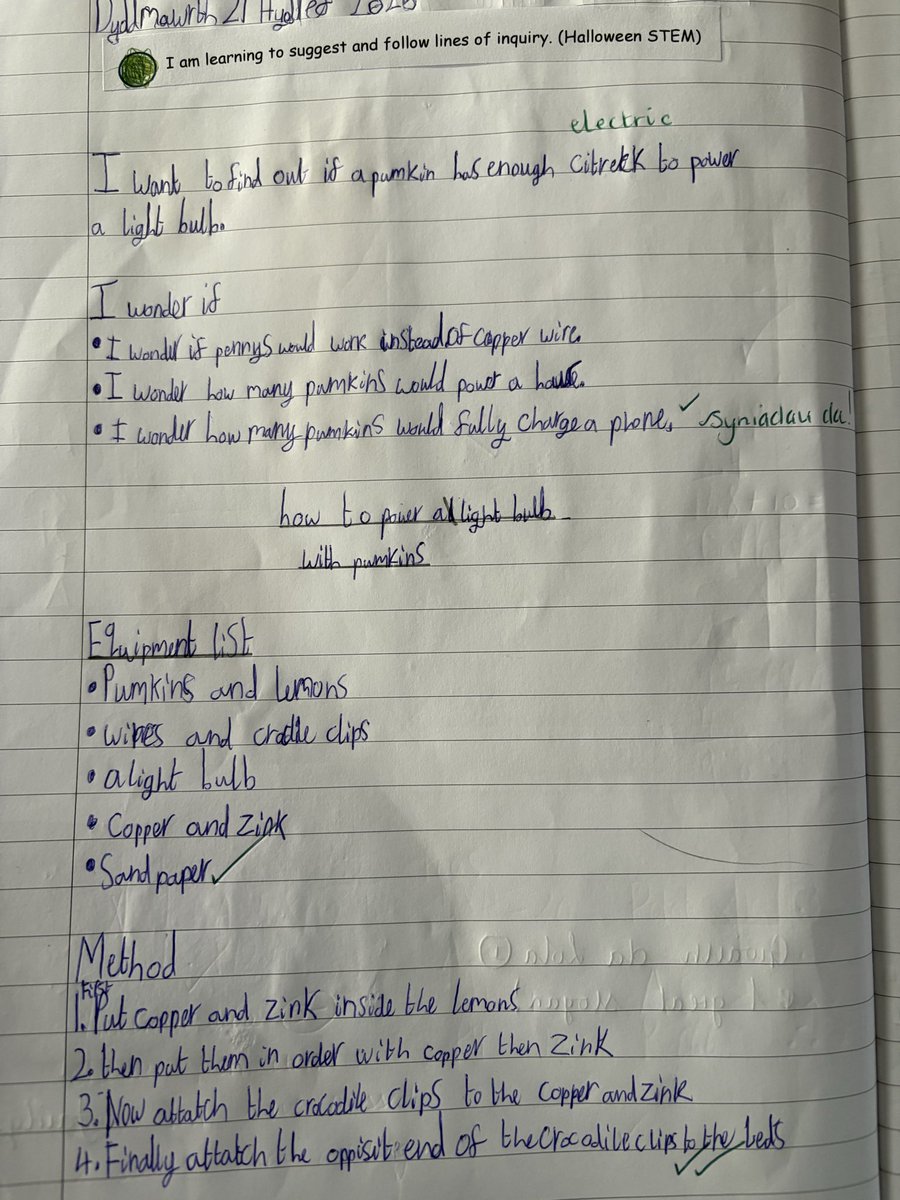 Dydd Mawrth 21 Hydref 2025
I am learning to suggest and follow lines of inquiry. (Halloween STEM)
electric
I want to find out if a pumkin has enough Citrekk to power
a light bulb.
I wonder if
• I wonder if pennys would work instead of copper wire.
• I wonder how many pumkins would power a house.
• I wonder how many pumkins would fully charge a phone. ✓ syniadau da!
how to power a light bulb
with pumkins
Equipment list
• Pumkins and lemons
• wires and cradle clips
• a light bulb
• Copper and Zink
• Sand paper ✓
Method
First
1. Put Copper and Zink inside the lemons
2. then put them in order with copper then Zink
3. Now attatch the crocodile clips to the Copper and Zink
4. Finally attatch the oppisit end of the crocodile clips to the leds